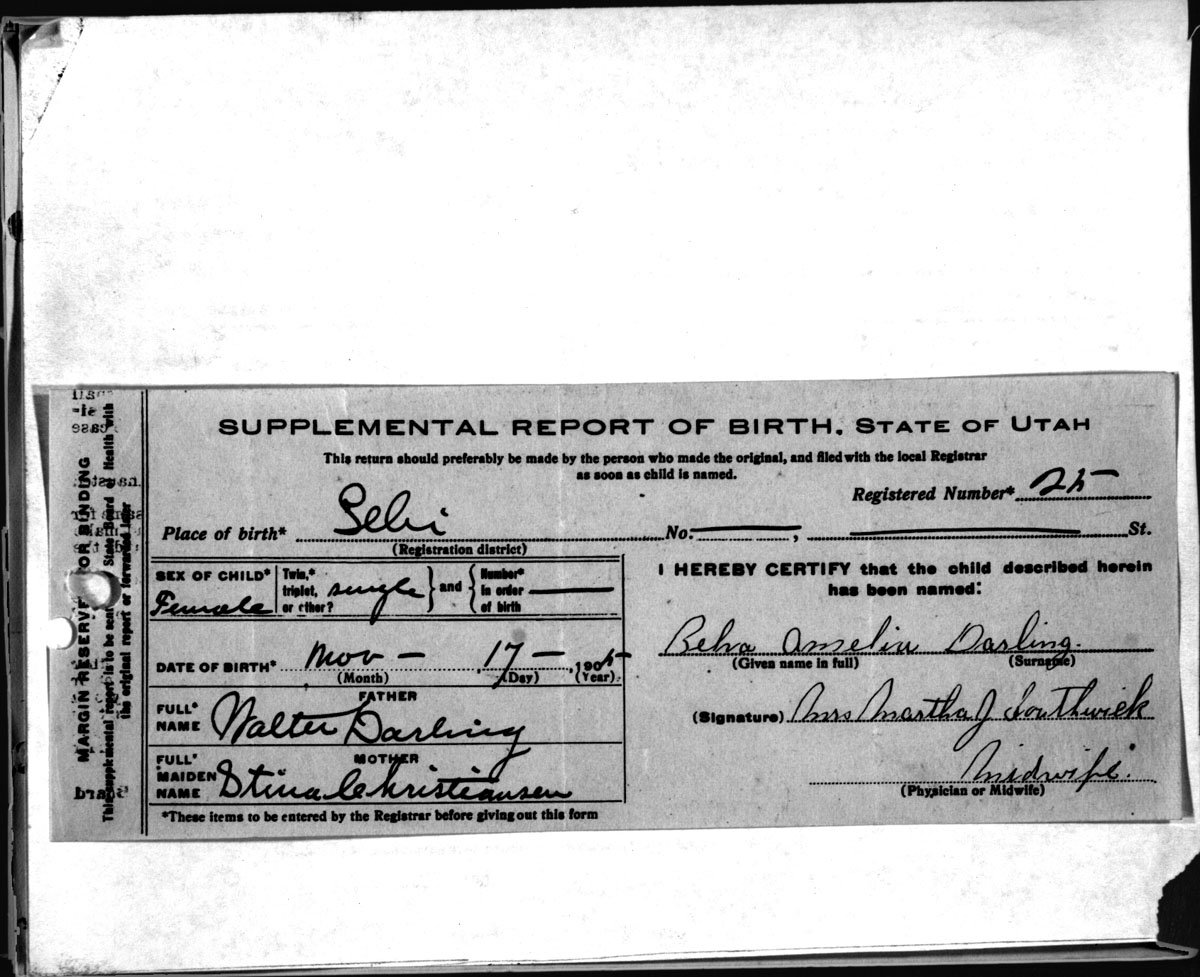 SUPPLEMENTAL REPORT OF BIRTH. STATE OF UTAH
This return should preferably be made by the person who made the original, and filed with the local Registrar
as soon as child is named.
Registered Number* 25
Place of birth* Lehi No. , St.
(Registration district)
SEX OF CHILD* Female
Twin,* triplet, or other? single
and
Number* in order of birth
DATE OF BIRTH* Nov - 17 - , 1905
(Month) (Day) (Year)
FATHER
FULL* NAME Walter Darling
MOTHER
FULL* MAIDEN NAME Stina Christiansen
*These items to be entered by the Registrar before giving out this form
I HEREBY CERTIFY that the child described herein
has been named:
Belva Amelia Darling.
(Given name in full) (Surname)
(Signature) Mrs Martha J Southwick
Midwife.
(Physician or Midwife)
MARGIN RESERVED FOR BINDING
This supplemental report is to be sent State Board of Health with
the original report or forwarded later